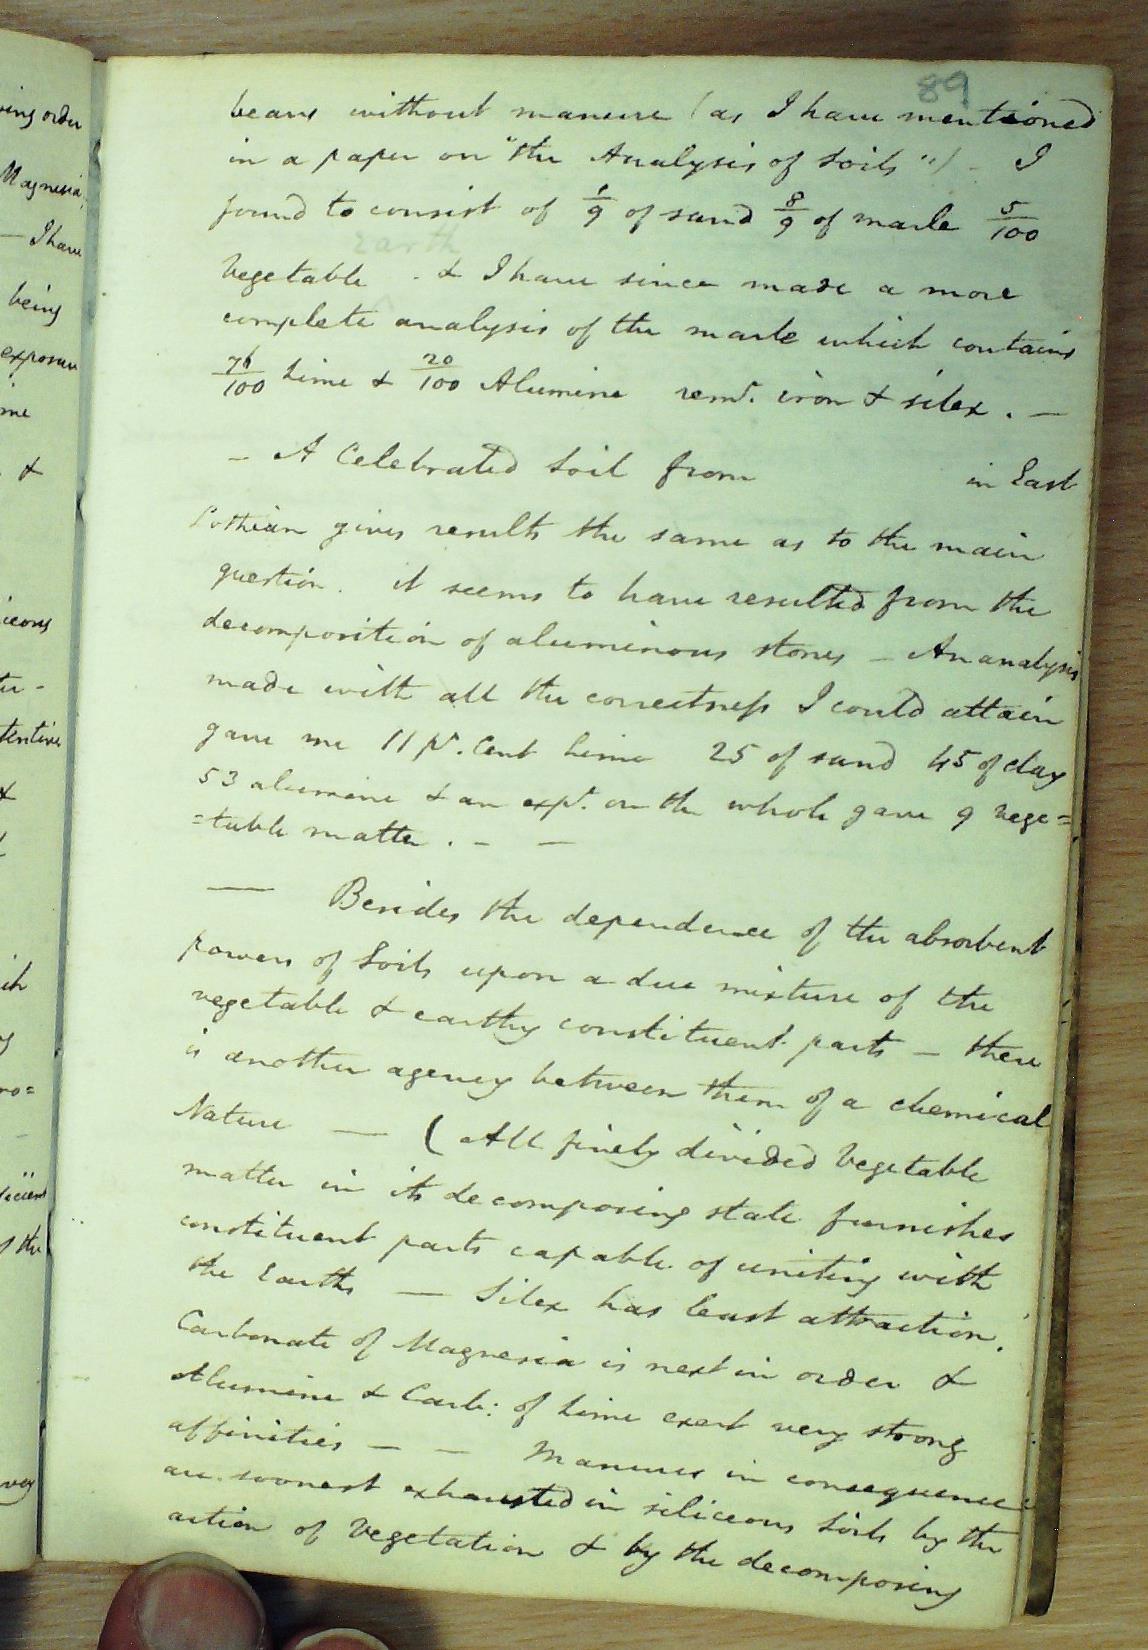 89
beans without manure (as I have mentioned
in a paper on "the Analysis of Soils") - I
found to consist of 1/9 of sand 8/9 of marle 5/100
earth
Vegetable . & I have since made a more
complete analysis of the marle which contains
76/100 Lime & 20/100 Alumine remr. iron & silex . —
– A Celebrated Soil from in East
Lothian gives results the same as to the main
question. it seems to have resulted from the
decomposition of aluminous stones – An analysis
made with all the correctness I could attain
gave me 11 pr. Cent Lime 25 of sand 45 of clay
53 alumine & an expt. on the whole gave 9 vege=
=table matter . – –
— Besides the dependence of the absorbent
powers of Soils upon a due mixture of the
vegetable & earthy constituent parts – there
is another agency between them of a chemical
Nature — ( All finely divided Vegetable
matter in its decomposing state furnishes
constituent parts capable of uniting with
the Earths — Silex has least attraction.
Carbonate of Magnesia is next in order &
Alumine & Carb: of Lime exert very strong
affinities – – Manures in consequence
are soonest exhausted in siliceous Soils by the
action of Vegetation & by the decomposing
ving order
Magnesia,
— I have
being
exposure
me
&
iceous
tentive
&
ro=
of the
very